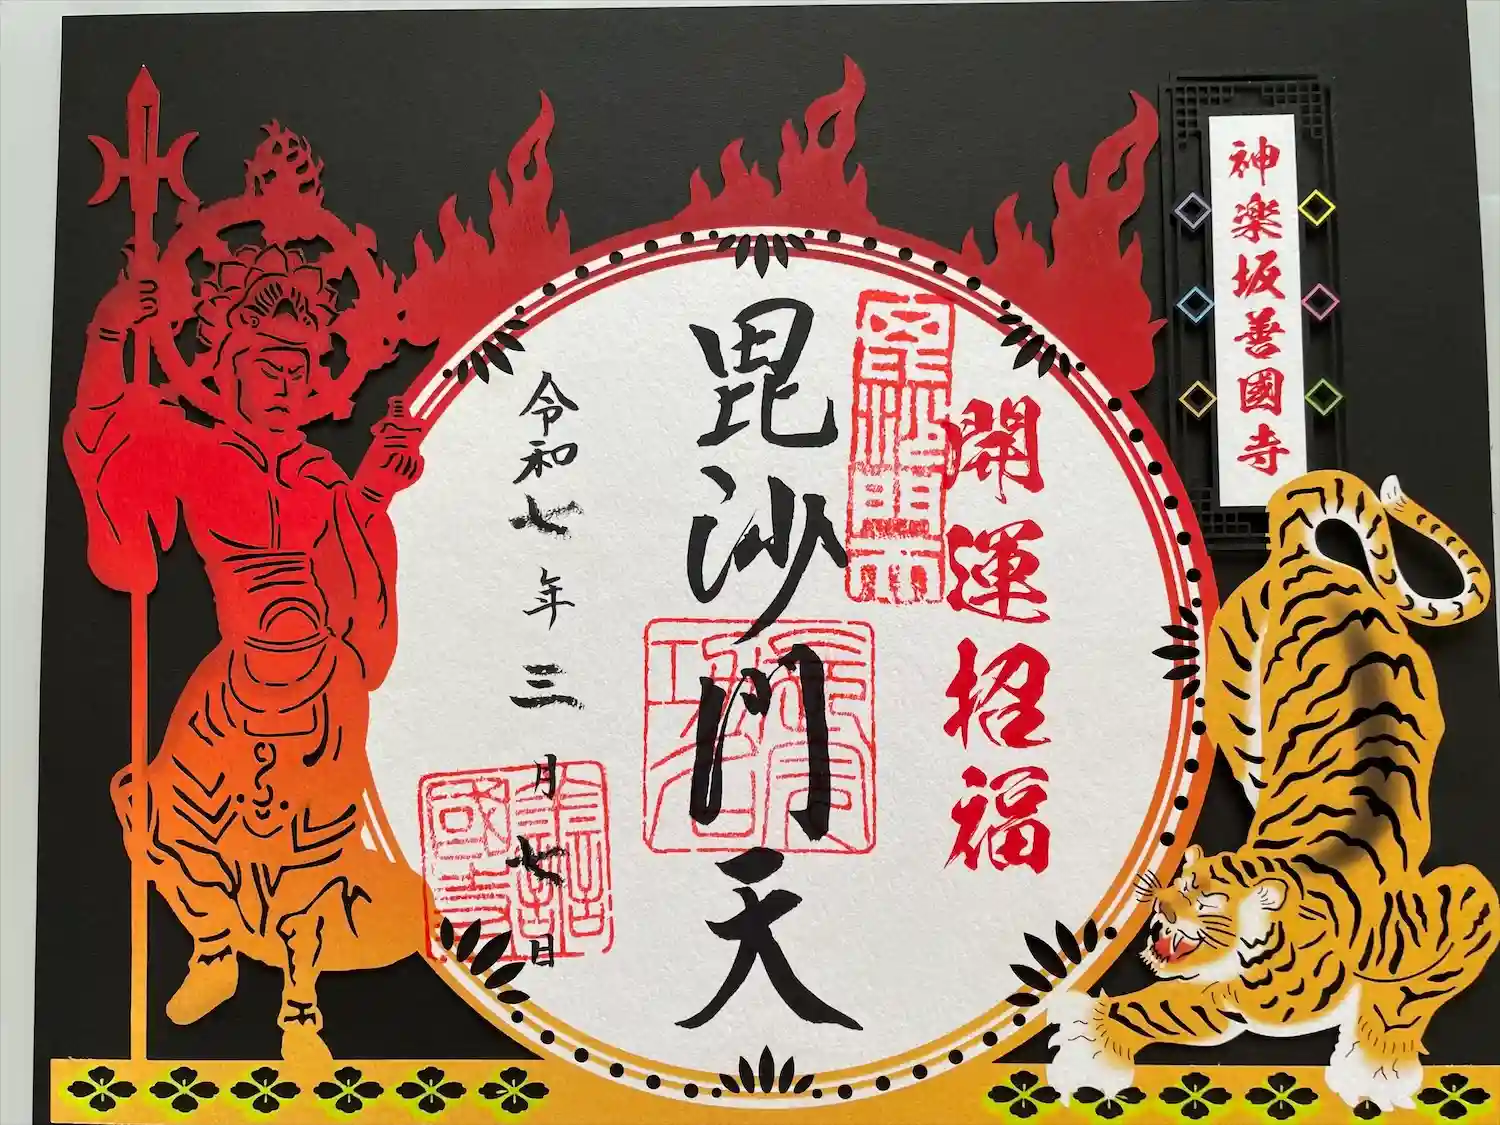 神楽坂善國寺
開運招福
毘沙門天
令和七年三月七日
善國寺